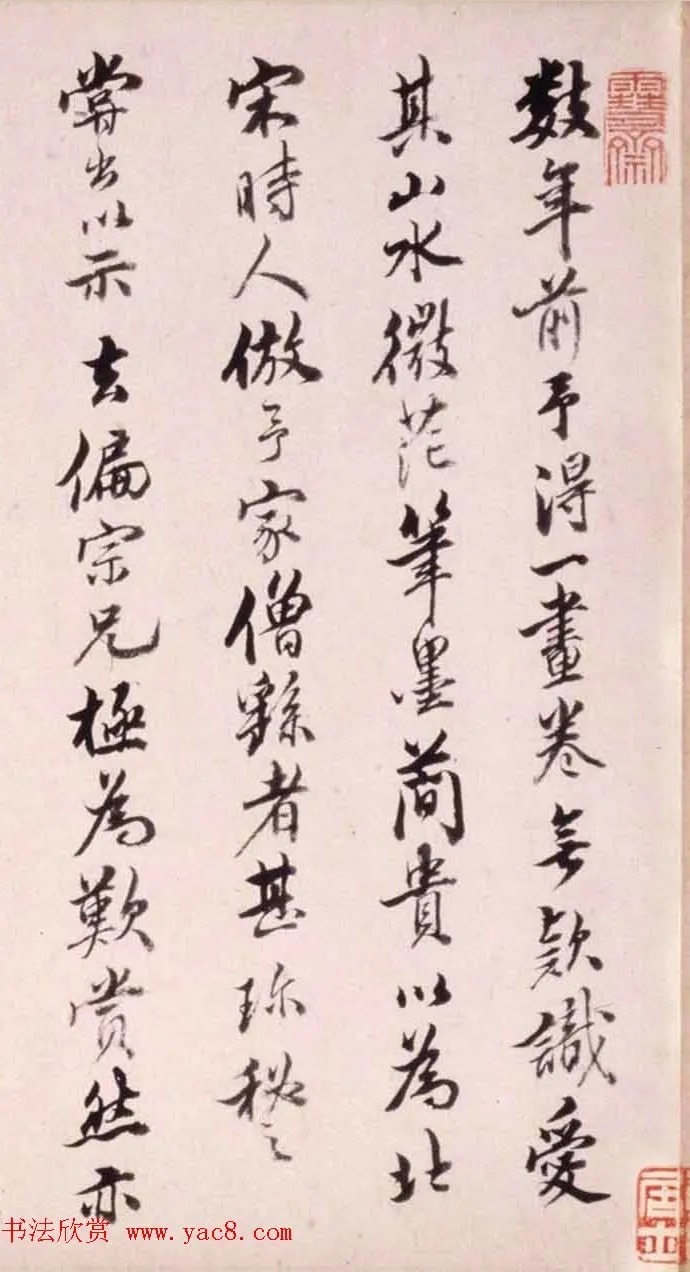 數年前予得一畫卷無款識愛
其山水微茫筆墨簡貴以為北
宋時人倣予家僧繇者甚珍秘之
嘗出以示去偏宗兄極為歎賞然亦
书法欣赏 www.yac8.com